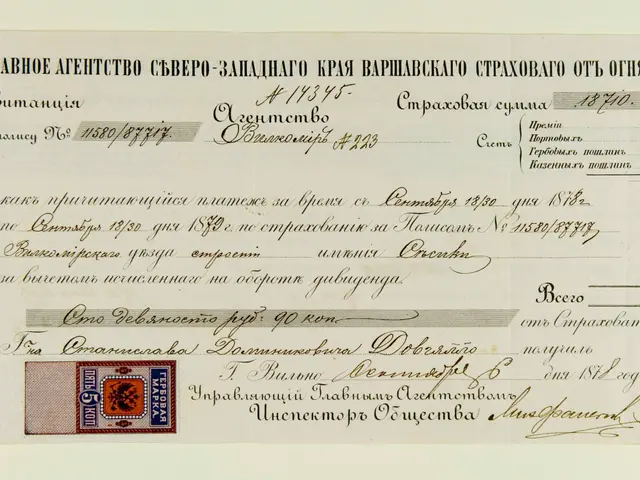 ЛАВНОЕ АГЕНТСТВО СѢВЕРО-ЗАПАДНАГО КРАЯ ВАРШАВСКАГО СТРАХОВАГО ОТЪ ОГНЯ
№ 14345.
витанція Агентство Страховая сумма 18710.
полису № 11580/87717 Вилкоміръ № 223 Счетъ
Преміи
Портовыхъ
Гербовыхъ пошлин
Казенныхъ пошлин
какъ причитающійся платежъ за время съ Сентября 18/30 дня 1878 г
по Сентября 18/30 дня 1879 г. по страхованію за Полисомъ № 11580/87717
Вилкомірскаго уѣзда строеній имѣнія
за вычетомъ исчисленнаго на оборотѣ дивиденда.
Всего
Сто девяносто руб: 90 коп
отъ Страховат
Г-на Станислава Доминиковича Довгялло получилъ
Г. Вильно, Сентября 6 дня 1878 год
Управляющій Главнымъ Агентствомъ
Инспекторъ Общества
ГЕРБОВАЯ
МАРКА
ПЯТЬ 5 КОП